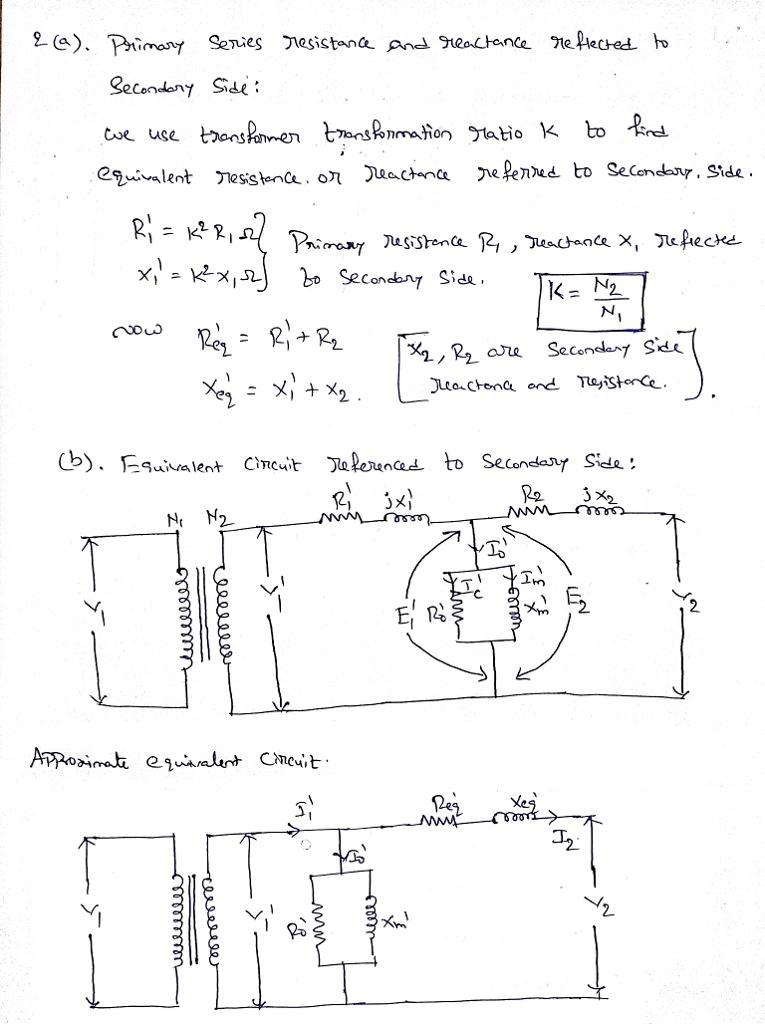 2(a). Primary Series resistance and reactance reflected to
Secondary Side:
we use transformer transformation ratio K to find
equivalent resistance. or reactance referred to Secondary. Side.
R₁' = K² R₁ Ω } Primary resistance R₁, reactance X₁ reflected
X₁' = K² X₁ Ω } to Secondary Side.
K = N₂/N₁
now Req' = R₁' + R₂ [X₂, R₂ are Secondary Side
Xeq' = X₁' + X₂. reactance and resistance.].
(b). Equivalent Circuit referenced to Secondary Side:
R₁' jX₁' R₂ jX₂
N₁ N₂
I₀'
Ic' Im'
V₁ V₁' E₁' R₀' Xm' E₂ V₂
Approximate equivalent Circuit.
I₁' Req' Xeq'
I₀' I₂
V₁ V₁' R₀' Xm' V₂